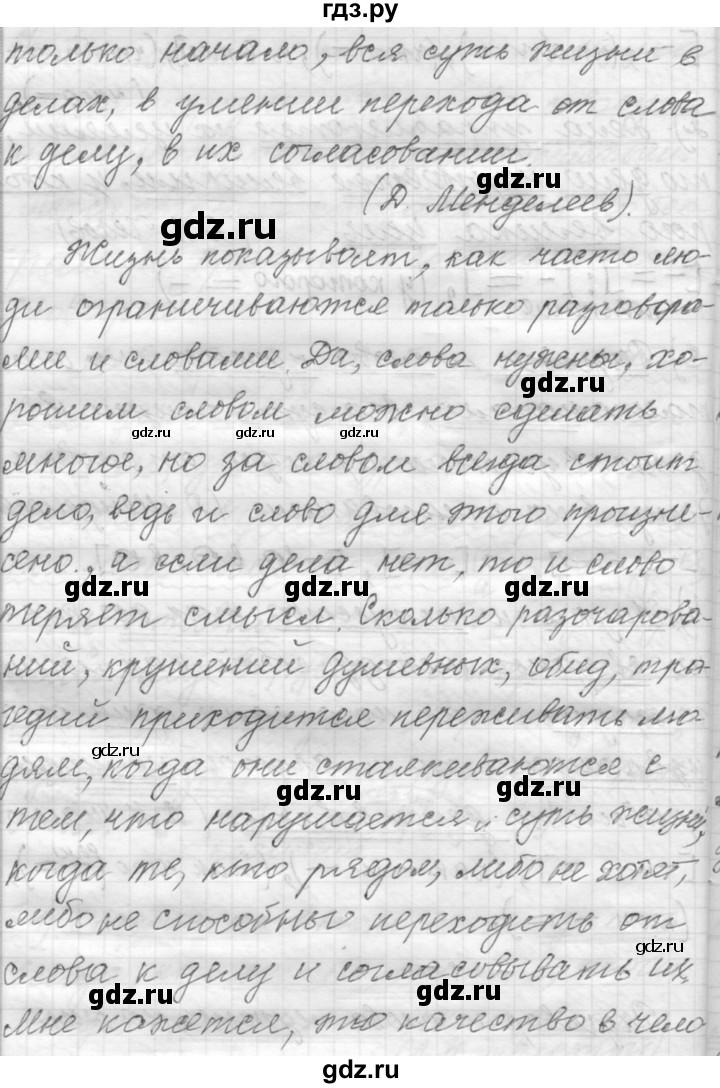 гдз.ру
только начало, вся суть жизни в
делах, в умении перехода от слова
к делу, в их согласовании.
gdz.ru
(Д. Менделеев).
gdz.ru
Жизнь показывает, как часто лю-
ди ограничиваются только разговора-
ми и словами. Да, слова нужны, хо-
gdz.ru
рошим словом можно сделать
gdz.ru gdz.ru gdz.ru
многое, но за словом всегда стоит
дело, ведь и слово для этого произне-
сено., а если дела нет, то и слово
gdz.ru gdz.ru gdz.ru
теряет смысл. Сколько разочарова-
ний, крушений душевных, обид, тра-
гедий приходится переживать лю-
gdz.ru
дям, когда они сталкиваются с
gdz.ru gdz.ru
тем, что нарушается „суть жизни,
когда те, кто рядом, либо не хотят,
либо не способны переходить от
gdz.ru
слова к делу и согласовывать их.
gdz.ru gdz.ru
Мне кажется, это качество в чело
gdz.ru